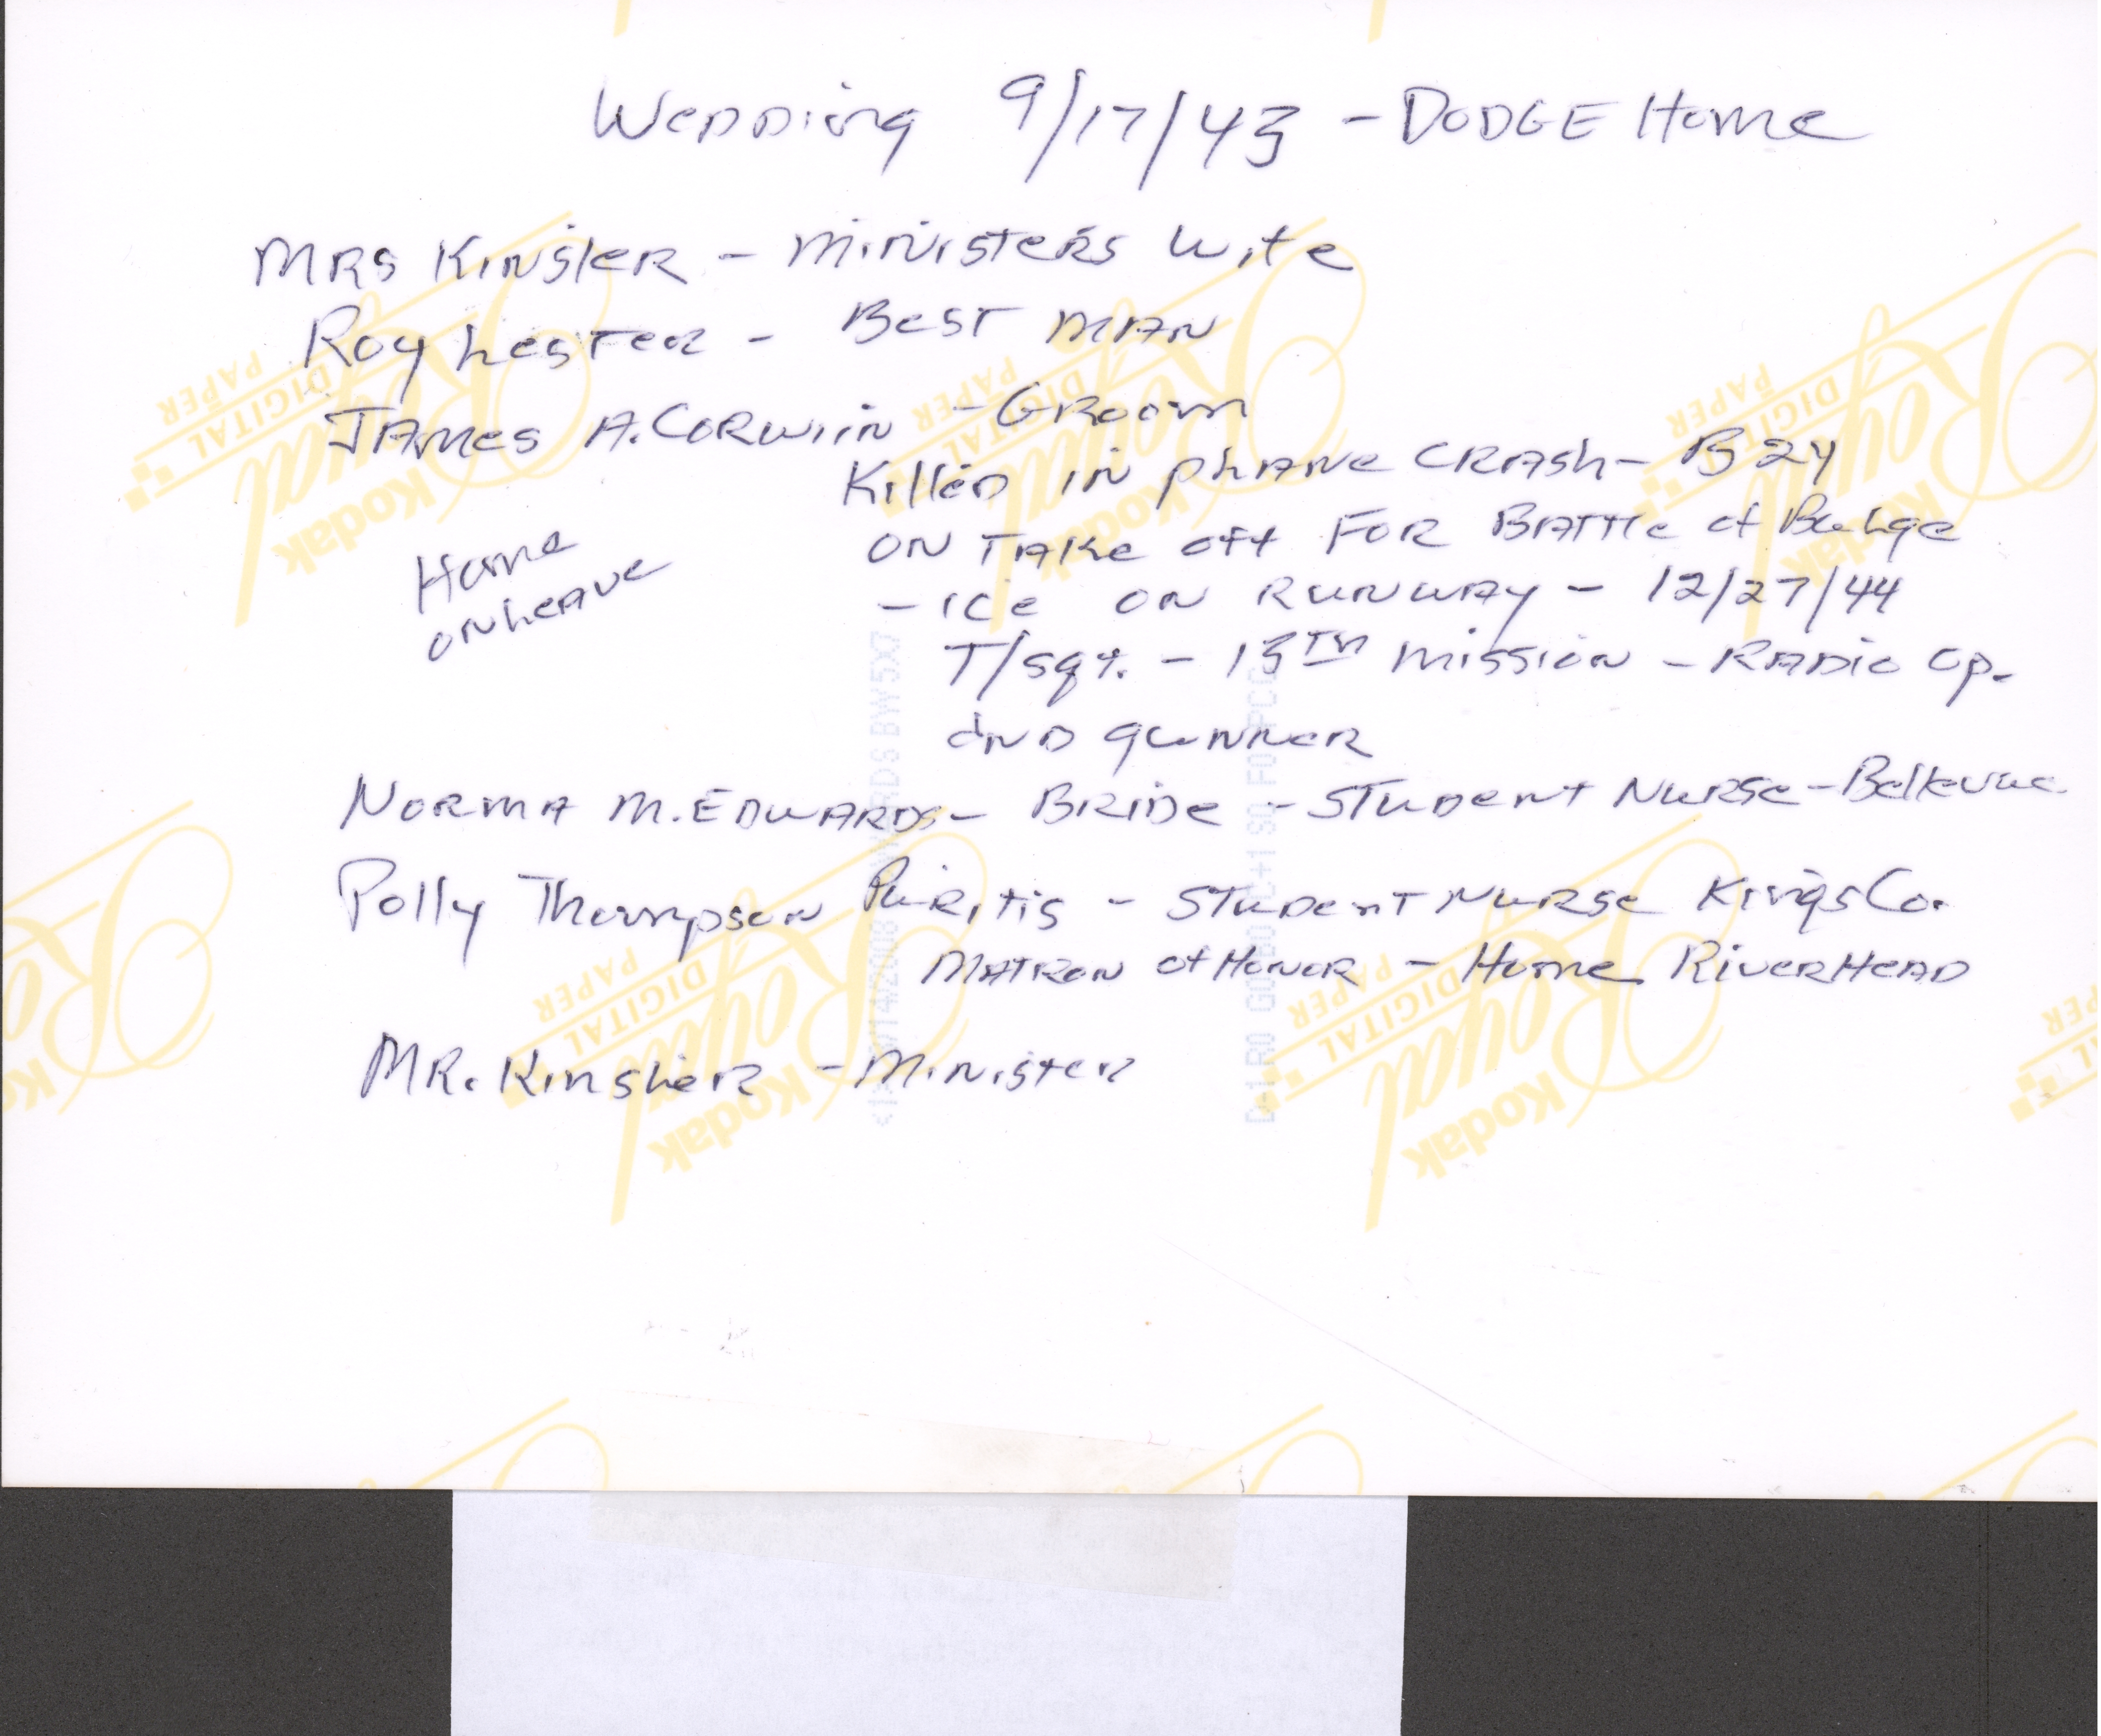 Wedding 9/17/43 - DODGE Home
MRS Kinsler - Ministers Wife
Roy Lester - Best MAN
JAmes A. CORWiin - GRoom
Killed in plane CRASh - B24
ON TAKe off FOR BATTle of Bulge
Home
on Leave
- ice ON RUNWAY - 12/27/44
T/sgt. - 13TH mission - RADio Op.
and gunner
NORMA M. EDWARDS - BRiDe - STudent Nurse - Bellevue
Polly Thompson Puritis - STudent Nurse Kings Co.
MATRON of Honor - Home RiverHeAD
MR. Kinsler - Minister
Kodak
Royal
DIGITAL
PAPER